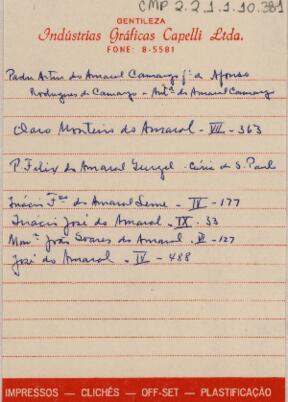 CMP 2.2.1.1.10.381
GENTILEZA
Indústrias Gráficas Capelli Ltda.
FONE: 8-5581
Padre Artur do Amaral Camargo fº de Afonso
Rodrigues de Camargo e Antª do Amaral Camargo
Claro Monteiro do Amaral - VII - 363
P. Felix do Amaral Gurgel - Cúria de S. Paulo
Inácio Fco do Amaral Leme - IV - 177
Inácio José do Amaral - IX - 33
Monsª João Soares do Amaral - V - 127
José do Amaral - IV - 488
IMPRESSOS — CLICHÊS — OFF-SET — PLASTIFICAÇÃO